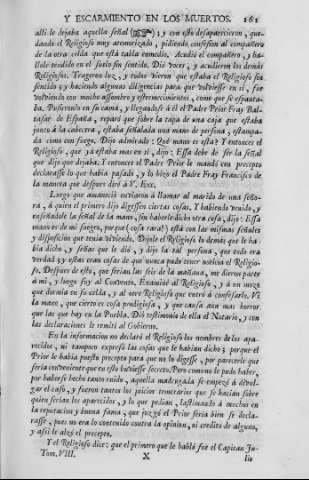 Y ESCARMIENTO EN LOS MUERTOS. 161
alli le dejaba aquella señal (☞) ; y con esto desaparecieron, que-
dando el Religioso muy atemorizado, pidiendo confesion al compañero
de la otra celda que està tabla enmedio. Acudiò el compañero, y ha-
llòle tendido en el suelo sin sentido. Diò voces, y acudieron los demàs
Religiosos. Trageron luz, y todos vieron que estaba el Religioso sin
sentido; y haciendo algunas diligencias para que volviesse en sì, fue
volviendo con mucho assombro y estremecimientos, como que se espanta-
ba. Pusieronlo en su cama, y llegandose à èl el Padre Prior Fray Bal-
tasar de España, reparò que sobre la tapa de una caja que estaba
junto à la cabecera, estaba señalada una mano de persona, estampa-
da como con fuego. Dijo admirado: Què mano es esta? Y entonces el
Religioso, que yà estaba mas en sì, dijo: Essa debe de ser la señal
que dijo que dejaba. Y entonces el Padre Prior le mandò con precepto
declarasse lo que habia pasado, y lo hizo el Padre Fray Francisco de
la manera que despues dirè à V. Exc.
Luego que amaneciò enviaron à llamar al marido de una seño-
ra, à quien el primero dijo digessen ciertas cosas. Y habiendo venido, y
enseñadole la señal de la mano, sin haberle dicho otra cosa, dijo: Essa
mano es de mi suegro, porque (cosa rara!) està con las mismas señales
y disposicion que tenia viviendo. Dijole el Religioso lo demàs que le ha-
bia dicho, y señas que le diò, y dijo la tal persona, que todo era
verdad y que estas eran cosas de que nunca pudo tener noticia el Religio-
so. Despues de esto, que serian las seis de la mañana, me dieron parte
à mì, y luego fuy al Convento. Examinè al Religioso, y à un mozo
que dormia en su celda, y al otro Religioso que entrò à confesarlo. Vì
la mano, que cierto es cosa prodigiosa, y que causa aun mas horror
que las que hay en la Puebla. Diò testimonio de ella el Notario, y con
las declaraciones le remitì al Gobierno.
En la informacion no declarò el Religioso los nombres de los apa-
recidos, ni tampoco expresò las cosas que le habian dicho; porque el
Prior le habia puesto precepto para que no lo digesse, por parecerle que
seria conveniente que en esto hubiesse secreto. Pero como no le pudo haber,
por haberse hecho tanto ruido, aquella madrugada se empezò à divul-
gar el caso, y fueron tantos los juicios temerarios que se hacian sobre
quien serian los aparecidos, y lo que pedian, lastimando à muchos en
la reputacion y buena fama, que juzgò el Prior seria bien se decla-
rasse, pues no era lo contenido contra la opinion, ni credito de alguno,
y assi le alzò el precepto.
Y el Religioso dice: que el primero que le hablò fue el Capitan Ju-
Tom. VIII. X lio